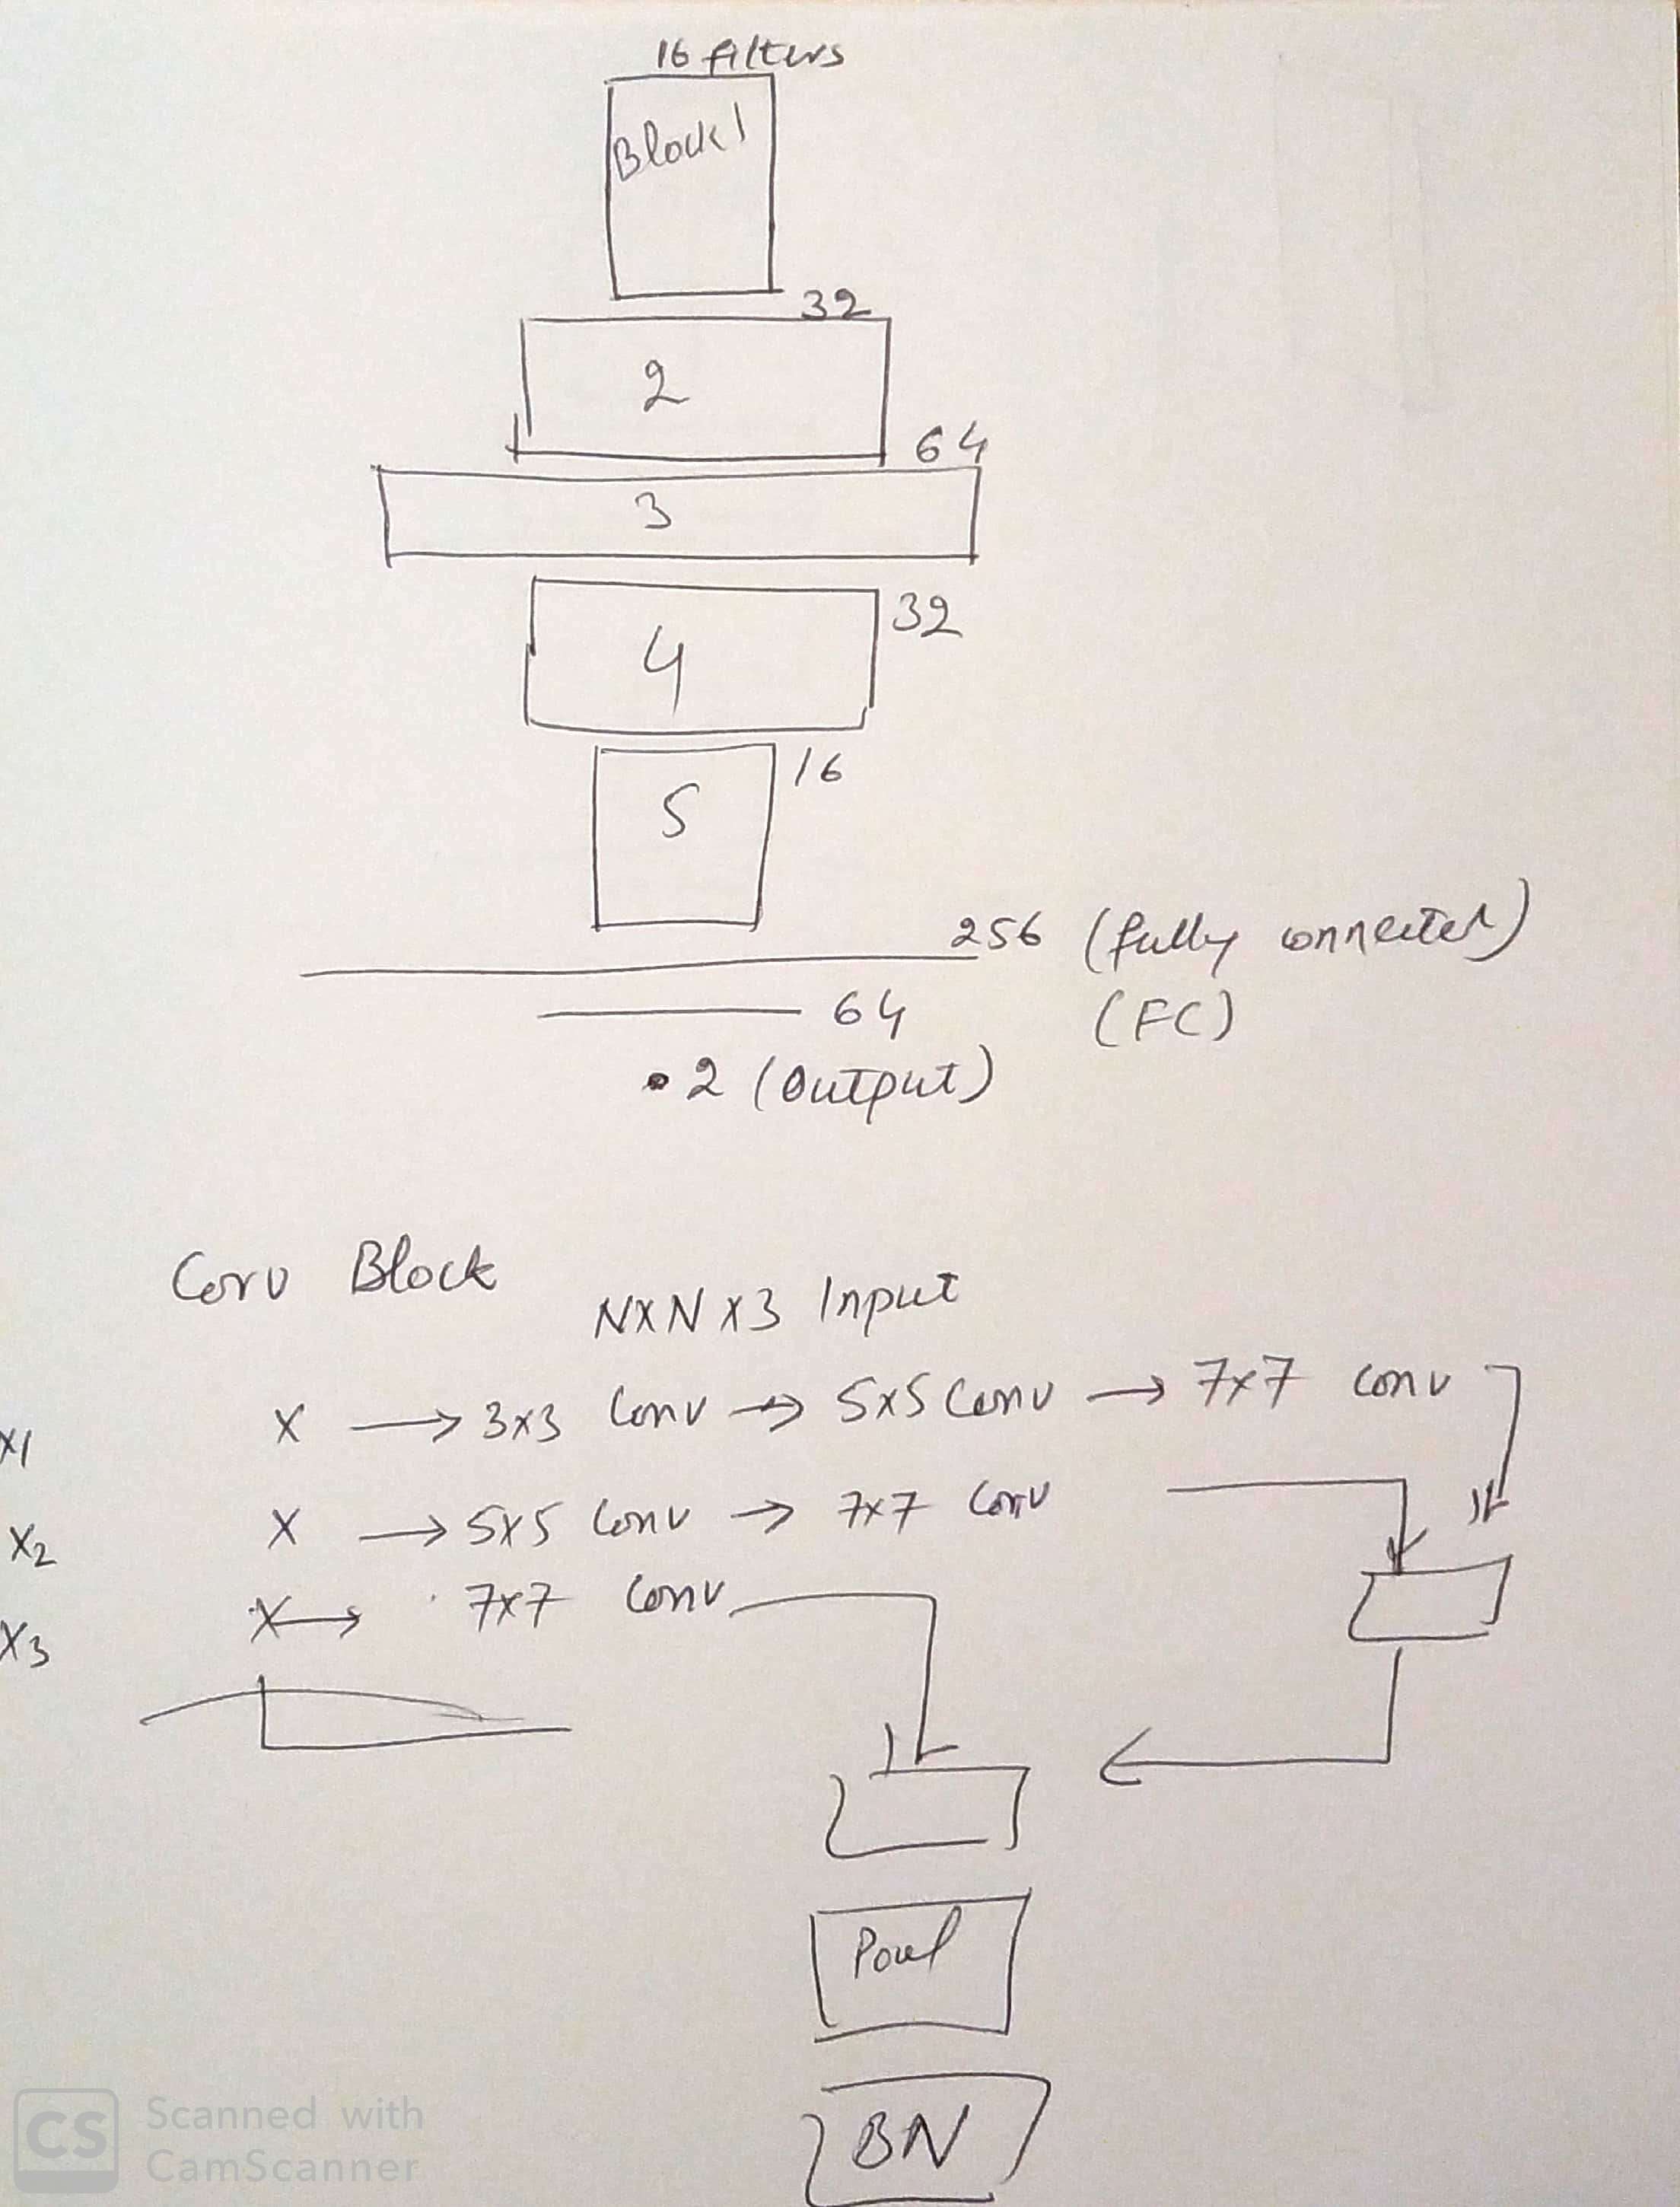 16 filters
Block 1
32
2
64
3
32
4
16
5
256 (fully connected)
64 (FC)
2 (Output)
Conv Block
NXNX3 Input
X1 X → 3x3 Conv → 5x5 Conv → 7x7 Conv
X2 X → 5x5 Conv → 7x7 Conv
X3 X → 7x7 Conv
Pool
BN
CS Scanned with
CamScanner